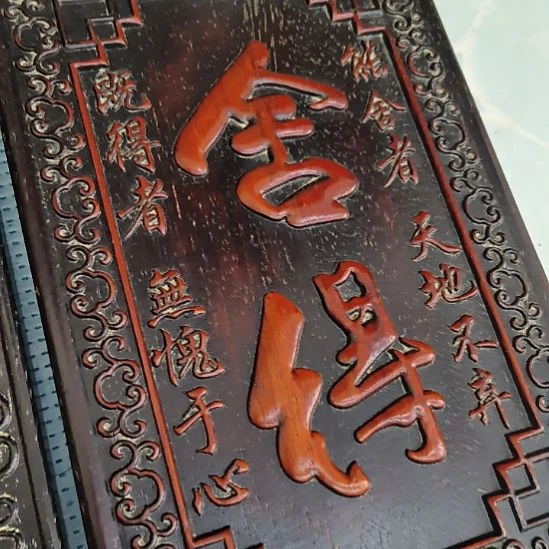 舍得
能舍者
天地不弃
既得者
無愧于心